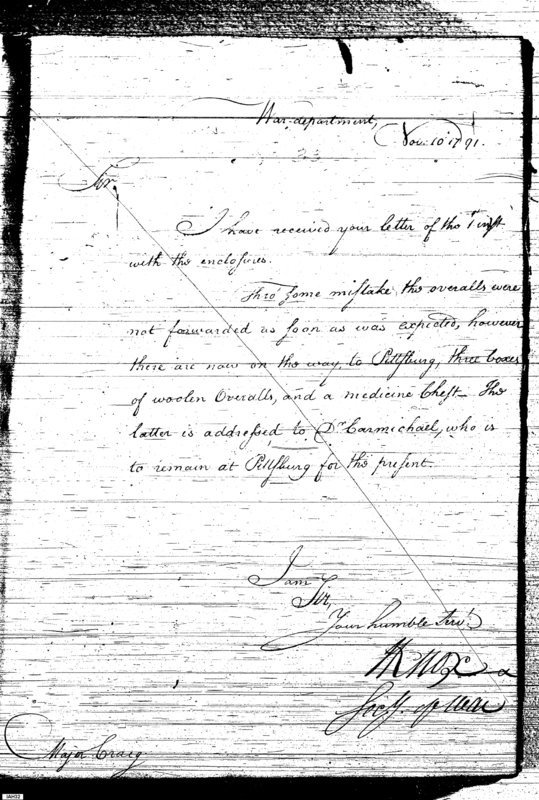 War-department,
Nov. 10 1791.
Sir,
I have received your letter of the 1st inst
with the enclosures.
Thro some mistake the overalls were
not forwarded as soon as was expected, however
there are now on the way, to Pittsburg, three boxes
of woolen Overalls, and a medicine Chest— The
latter is addressed to Dr. Carmichael, who is
to remain at Pittsburg for the present.
I am
Sir,
Your humble Servt.
HKnox
Secy. of War
Major Craig
IAH32